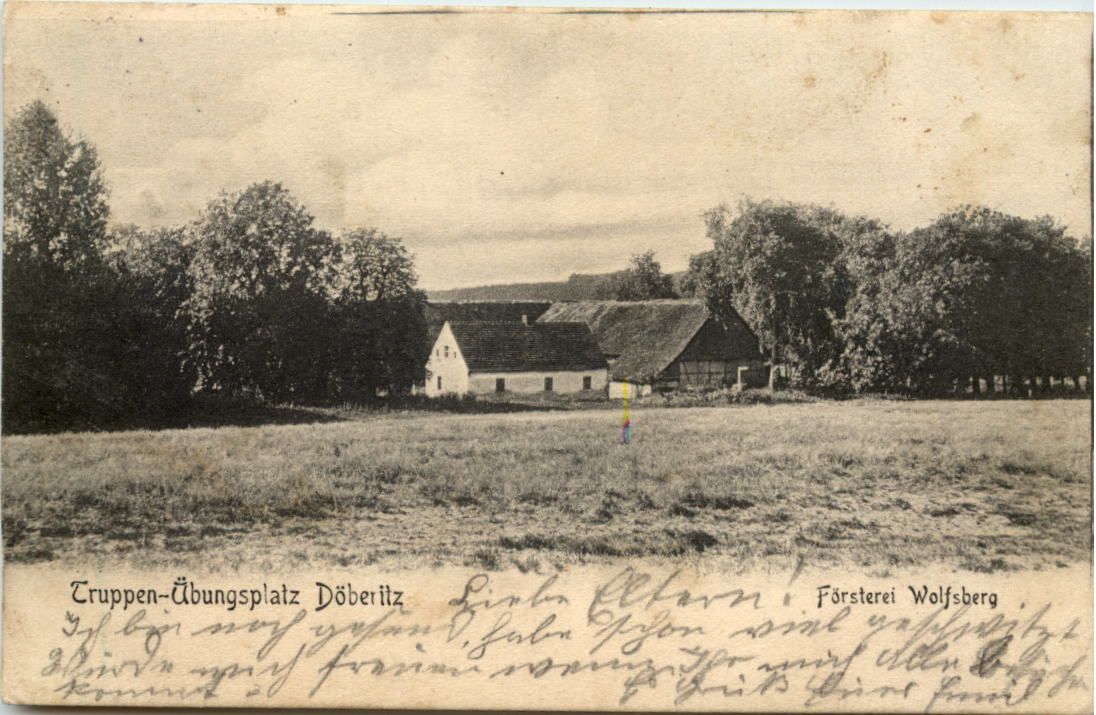 Truppen-Übungsplatz Döberitz
Försterei Wolfsberg
Liebe Eltern!
Ich bin noch gesund, habe schon viel geschwitzt
Würde mich freuen wenn Ihr mich Alle
kommt
Es Grüßt Euer Emil